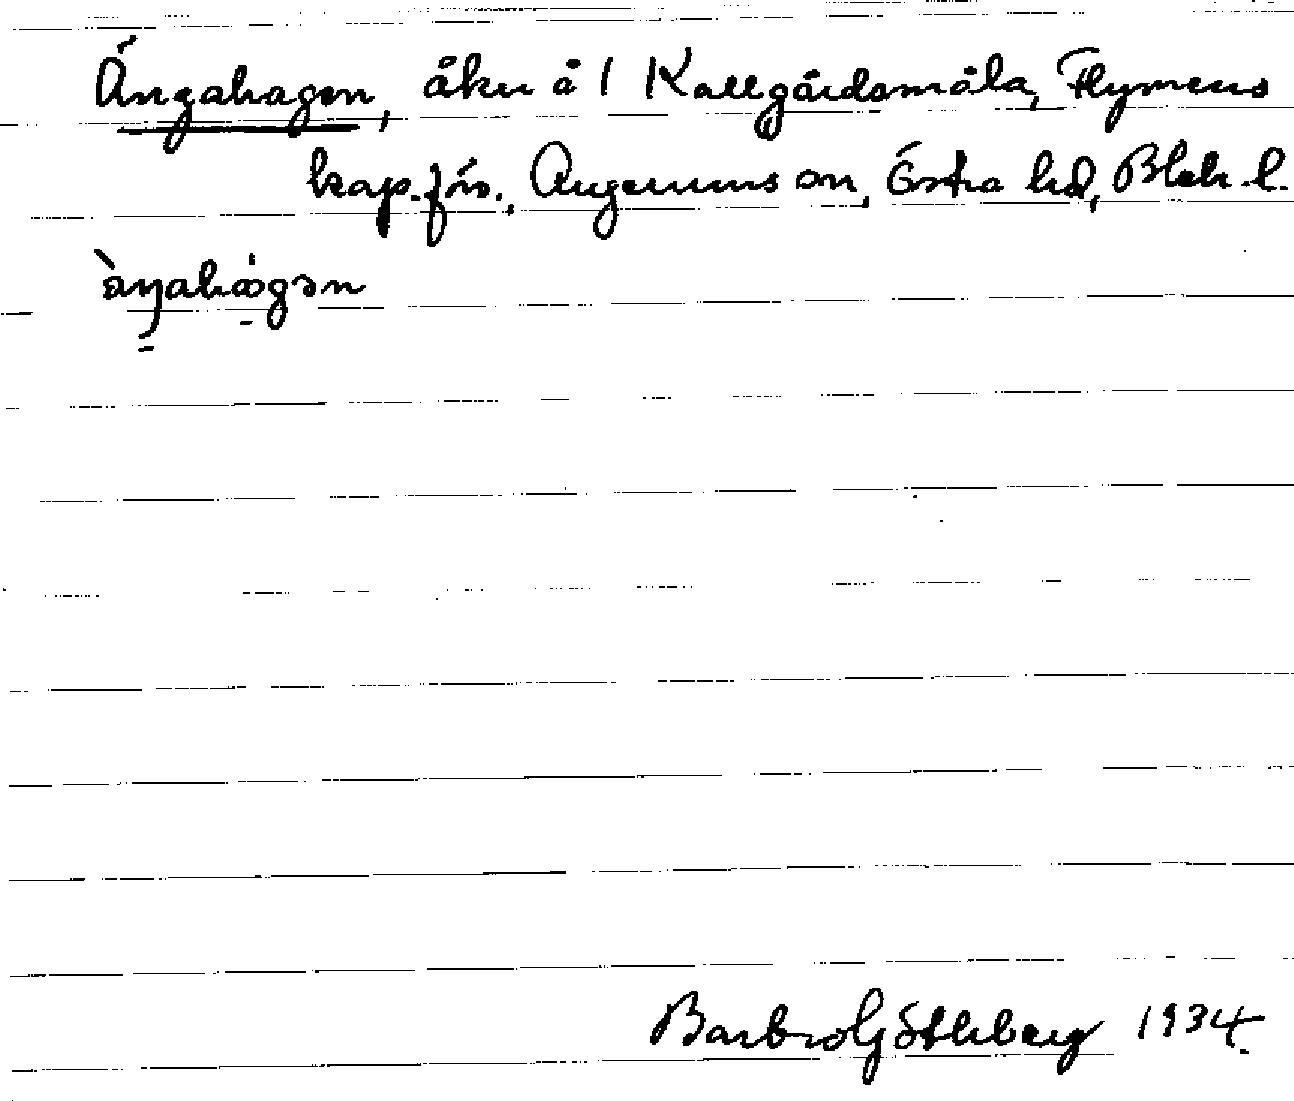 Ängahagen, åker å 1 Kallgårdsmåla, Flymens
kap.förs., Augerums sn, Östra hd, Blek. l.
àŋahǿgən
Barbro Götherberg 1934.